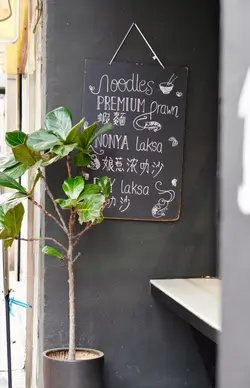 noodles
PREMIUM Prawn
蝦麵
NONYA laksa
娘惹滚叻沙
laksa
叻沙